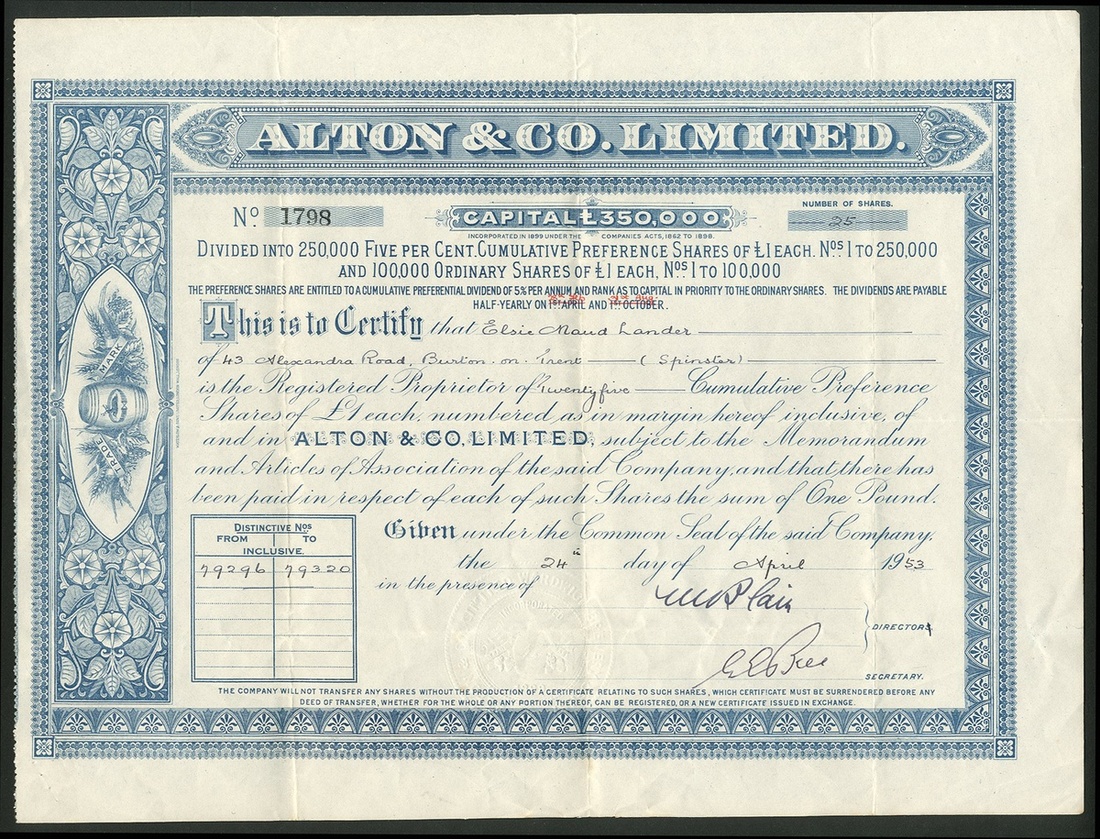 ALTON & CO. LIMITED.
No. 1798
CAPITAL £350,000
NUMBER OF SHARES.
25
INCORPORATED IN 1899 UNDER THE COMPANIES ACTS, 1862 TO 1898.
DIVIDED INTO 250,000 FIVE PER CENT. CUMULATIVE PREFERENCE SHARES OF £1 EACH. Nos. 1 TO 250,000
AND 100,000 ORDINARY SHARES OF £1 EACH, Nos. 1 TO 100,000
THE PREFERENCE SHARES ARE ENTITLED TO A CUMULATIVE PREFERENTIAL DIVIDEND OF 5% PER ANNUM AND RANK AS TO CAPITAL IN PRIORITY TO THE ORDINARY SHARES. THE DIVIDENDS ARE PAYABLE
HALF-YEARLY ON 1ST APRIL AND 1ST OCTOBER.
This is to Certify that Elsie Maud Lander
of 43 Alexandra Road, Burton-on-Trent (Spinster)
is the Registered Proprietor of Twentyfive Cumulative Preference
Shares of £1 each, numbered as in margin hereof inclusive, of
and in ALTON & CO, LIMITED, subject to the Memorandum
and Articles of Association of the said Company, and that there has
been paid in respect of each of such Shares the sum of One Pound.
Given under the Common Seal of the said Company,
the 24th day of April 1953
in the presence of
DIRECTORS
SECRETARY.
DISTINCTIVE Nos
FROM TO
INCLUSIVE.
79296 79320
TRADE MARK
THE COMPANY WILL NOT TRANSFER ANY SHARES WITHOUT THE PRODUCTION OF A CERTIFICATE RELATING TO SUCH SHARES, WHICH CERTIFICATE MUST BE SURRENDERED BEFORE ANY
DEED OF TRANSFER, WHETHER FOR THE WHOLE OR ANY PORTION THEREOF, CAN BE REGISTERED, OR A NEW CERTIFICATE ISSUED IN EXCHANGE.